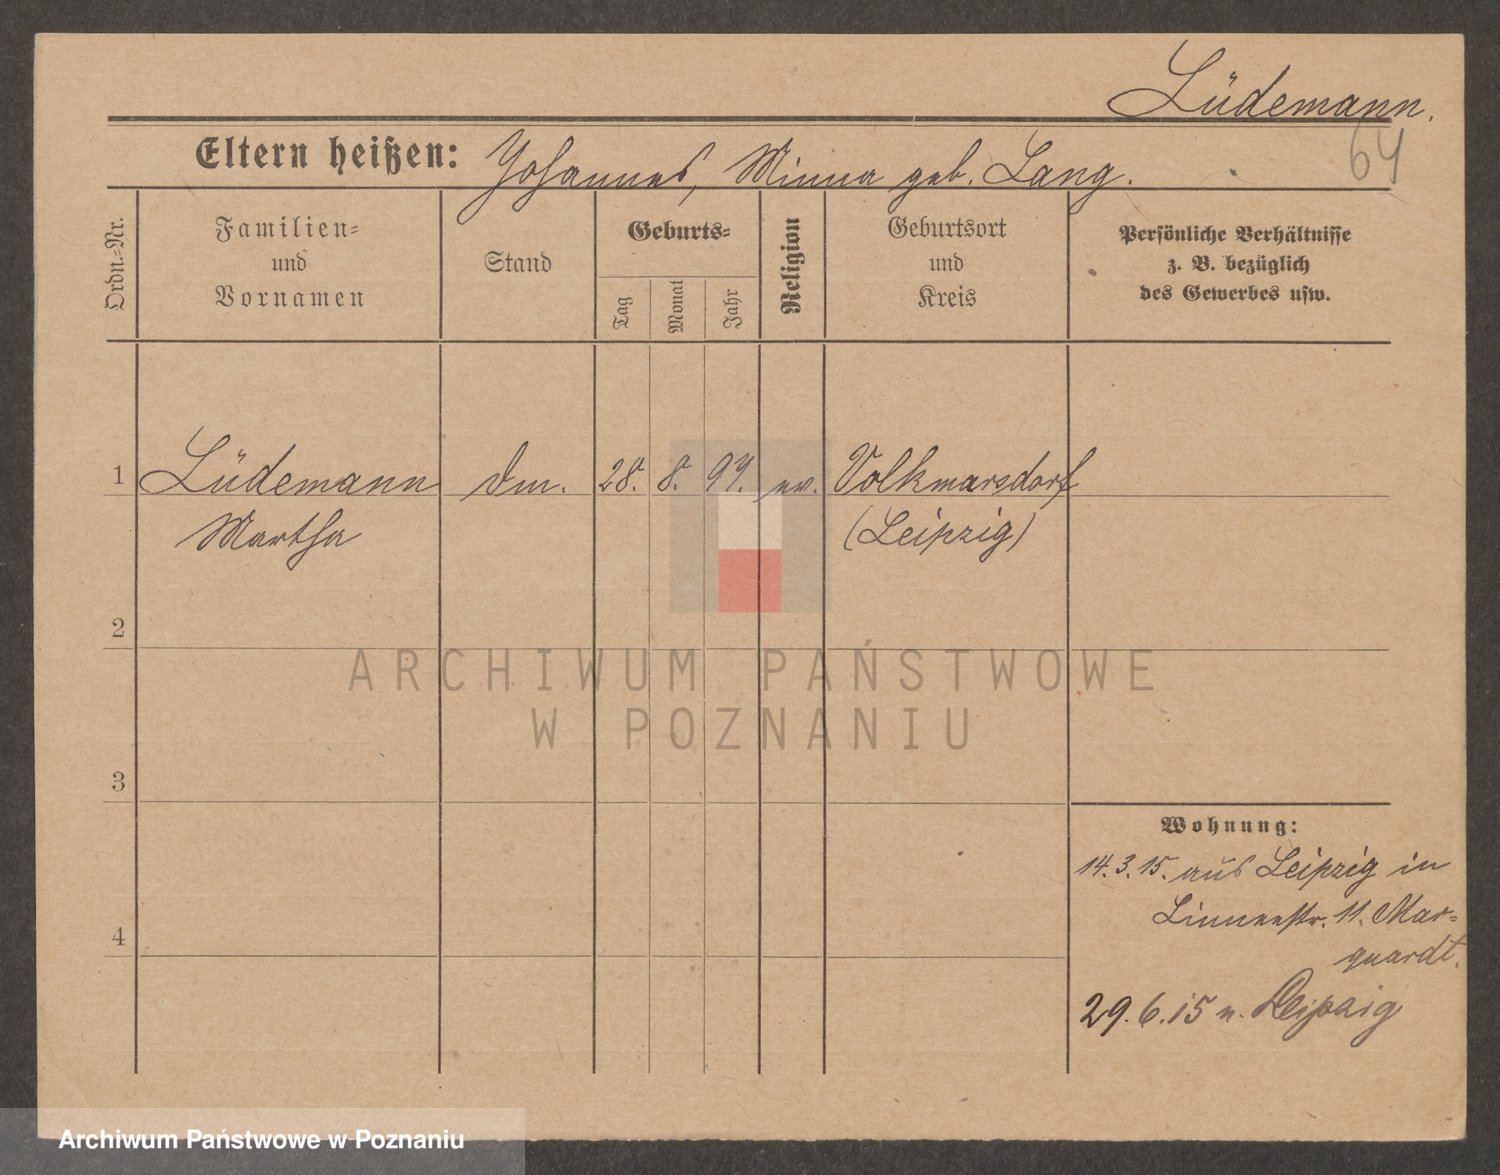 Lüdemann.
64
Eltern heißen: Johannes, Minna geb. Lang.
Ordn.-Nr.
Familien-
und
Vornamen
Stand
Geburts-
Tag
Monat
Jahr
Religion
Geburtsort
und
Kreis
Persönliche Verhältnisse
z. B. bezüglich
des Gewerbes usw.
1 Lüdemann 28. 8. ev. Volkmarsdorf
Martha (Leipzig)
2
3
4
ARCHIWUM PAŃSTWOWE
W POZNANIU
Wohnung:
14.3.15. aus Leipzig in
Linneestr. 11. Mar-
quardt.
29.6.15 n. Leipzig
Archiwum Państwowe w Poznaniu